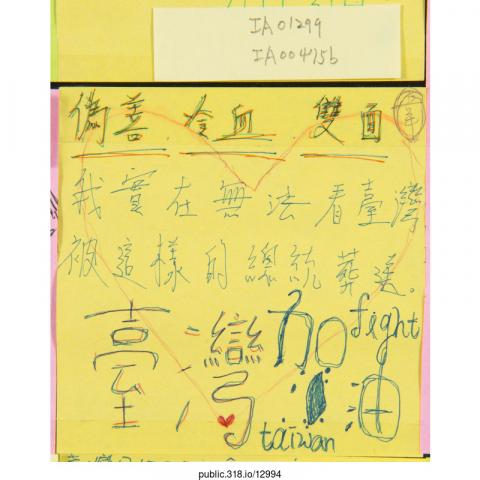 IA01299
IA00475b
偽善 冷血 雙面
我實在無法看臺灣
被這樣的總統葬送。
臺灣加油
fight
taiwan
public.318.io/12994